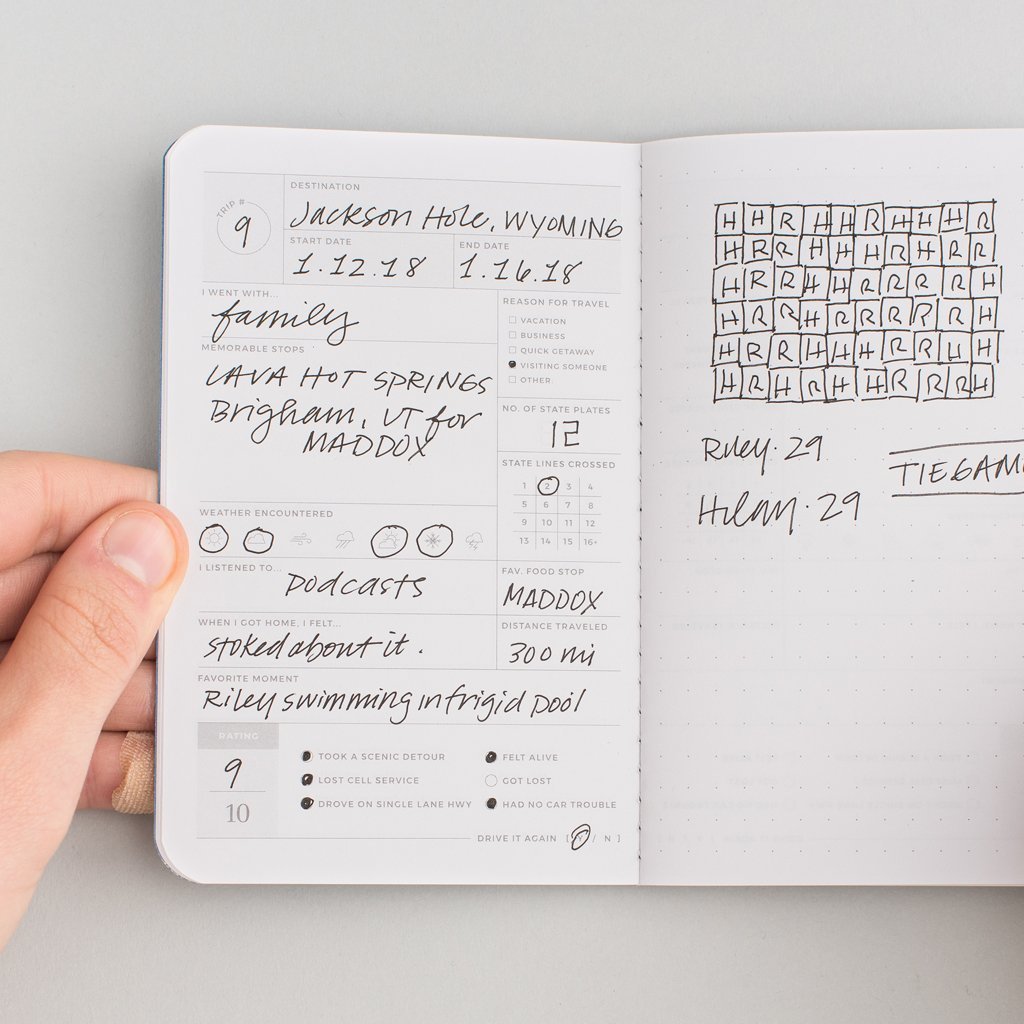 TRIP #
9
DESTINATION
Jackson Hole, WYOMING
START DATE
1.12.18
END DATE
1.16.18
I WENT WITH...
family
REASON FOR TRAVEL
VACATION
BUSINESS
QUICK GETAWAY
VISITING SOMEONE
OTHER
MEMORABLE STOPS
LAVA HOT SPRINGS
Brigham, UT for
MADDOX
NO. OF STATE PLATES
12
STATE LINES CROSSED
1 2 3 4
5 6 7 8
9 10 11 12
13 14 15 16+
WEATHER ENCOUNTERED
I LISTENED TO...
podcasts
FAV. FOOD STOP
MADDOX
WHEN I GOT HOME, I FELT...
stoked about it.
DISTANCE TRAVELED
300 mi
FAVORITE MOMENT
Riley swimming in frigid pool
RATING
9
10
TOOK A SCENIC DETOUR
LOST CELL SERVICE
DROVE ON SINGLE LANE HWY
FELT ALIVE
GOT LOST
HAD NO CAR TROUBLE
DRIVE IT AGAIN [ Y / N ]
H H R H H R H H H R
H R R H H H R H R R
H R R H H R R R R H
H R R H R R R R R H
H R R H H H R R H H
H R H R H H R R R H
Riley. 29
Hilary. 29
TIEGAM